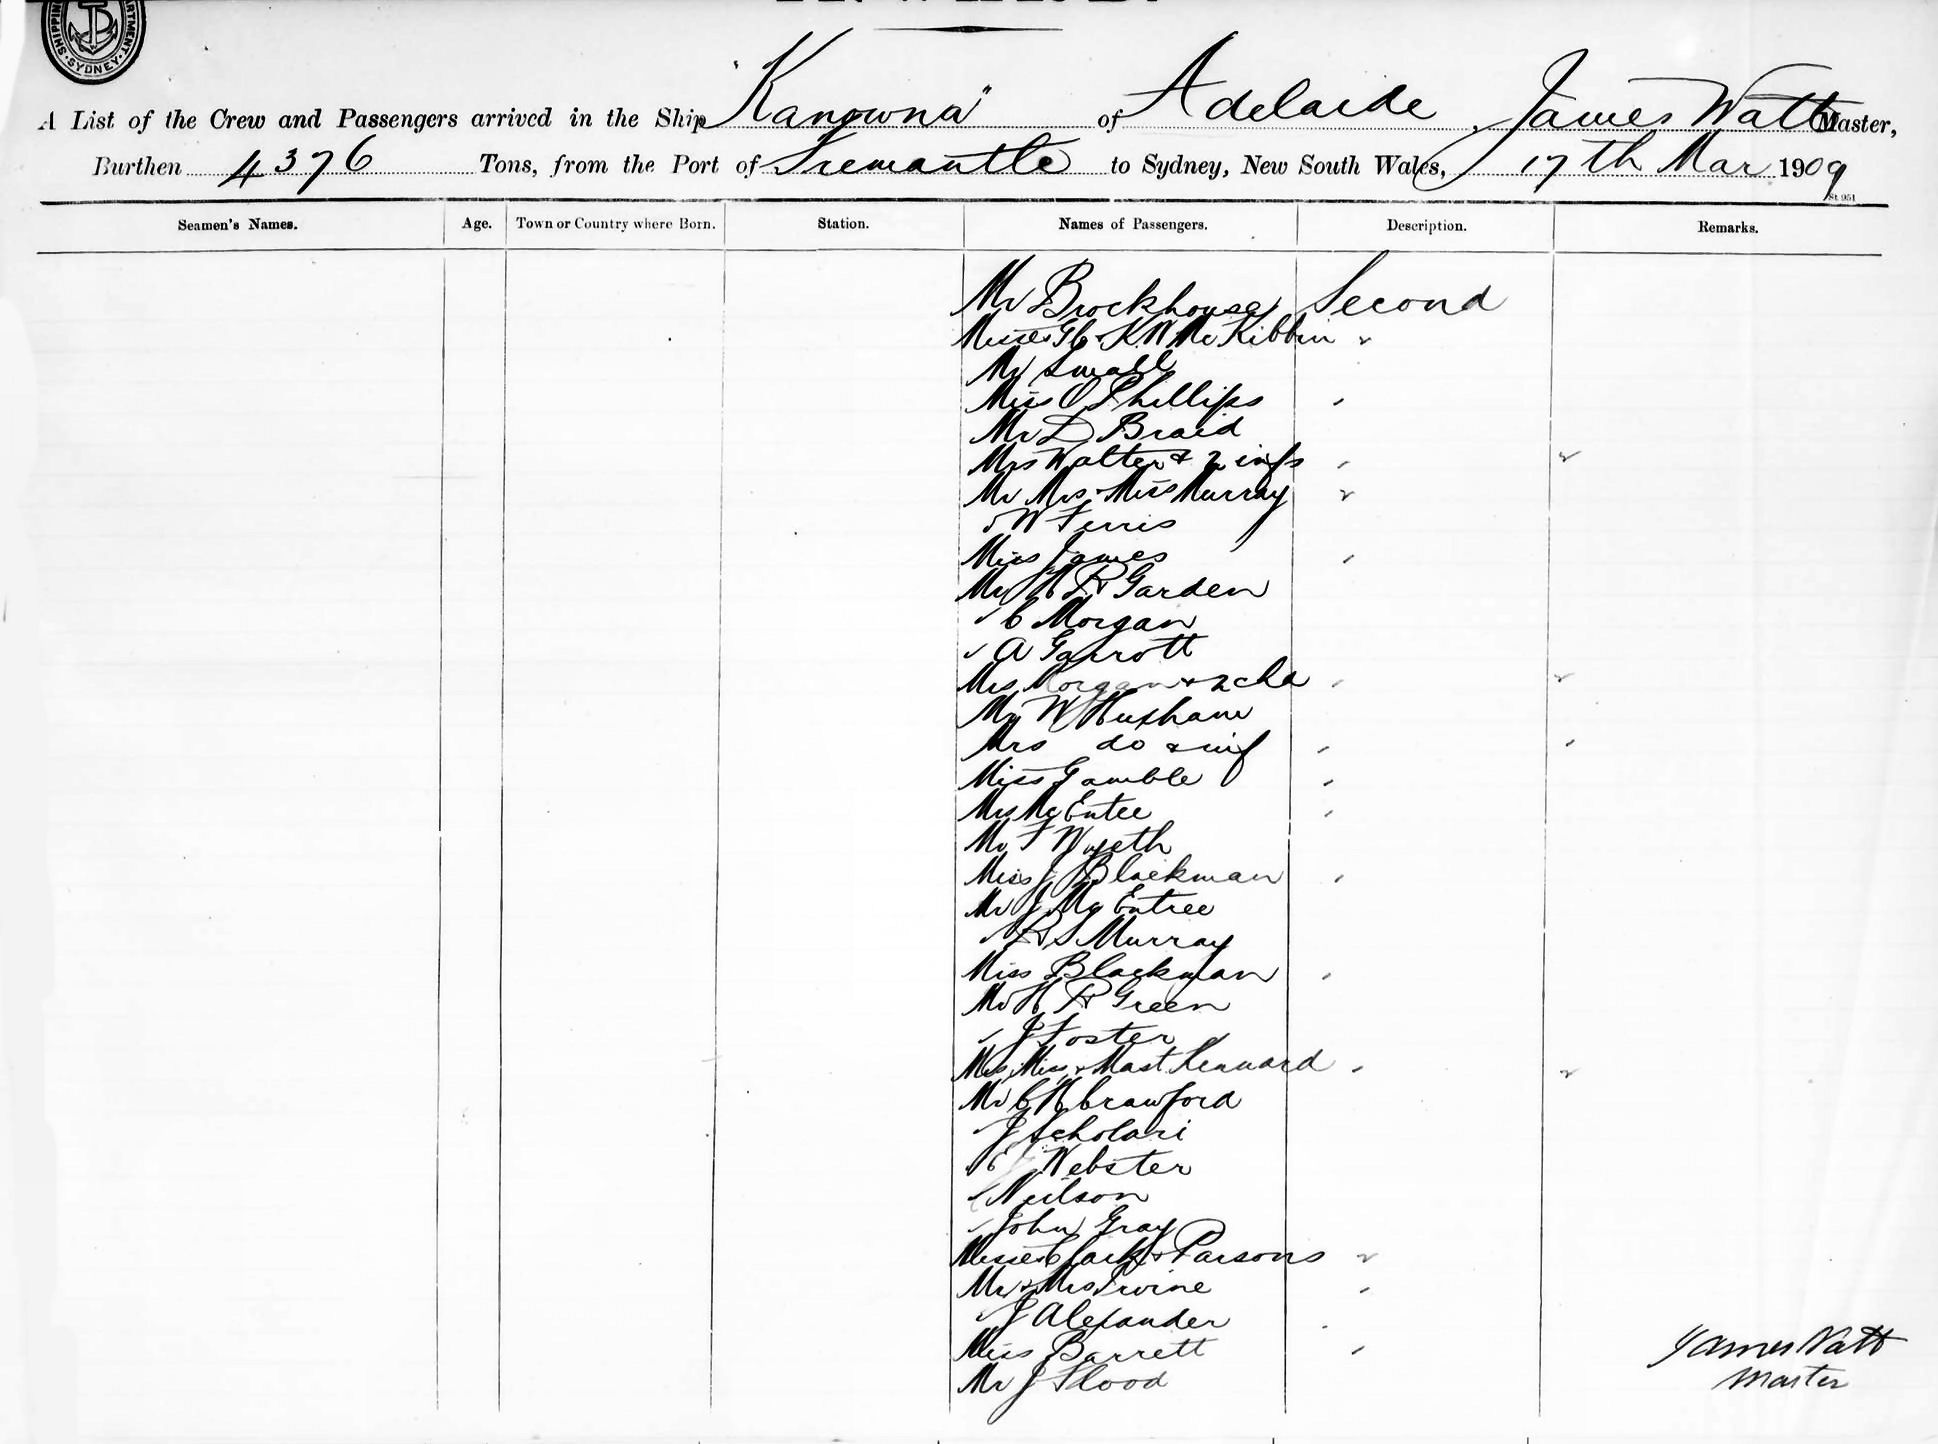 SHIPPING DEPARTMENT SYDNEY
A List of the Crew and Passengers arrived in the Ship "Kanowna" of Adelaide, James Watt Master,
Burthen 4376 Tons, from the Port of Fremantle to Sydney, New South Wales, 17th Mar 1909
St 951
Seamen's Names. Age. Town or Country where Born. Station. Names of Passengers. Description. Remarks.
Mr Brockhouse Second
Misses & K W McKibbin "
Mr Small
Miss O Phillips '
Mr D Braid
Mrs Walter & 2 infs ' "
Mr Mrs & Miss Murray "
" W Ferris
Miss James '
Mr H R Garden
" C Morgan
" A Garrott
Mrs Morgan & 2 chd ' "
Mr W Huxham
Mrs do & inf ' '
Miss Gamble '
Mrs McEntee '
Mr F Wyeth
Miss J Blackman '
Mr J McEntree
" R S Murray
Miss Blackman '
Mr H R Green
" J Foster
Mrs, Miss & Mast Kennard ' "
Mr C H Crawford
" J Scholari
" E Webster
" Neilson
" John Gray
Misses Clark & Parsons "
Mr & Mrs Irvine '
" J Alexander
Miss Barrett '
Mr J Flood
James Watt
Master